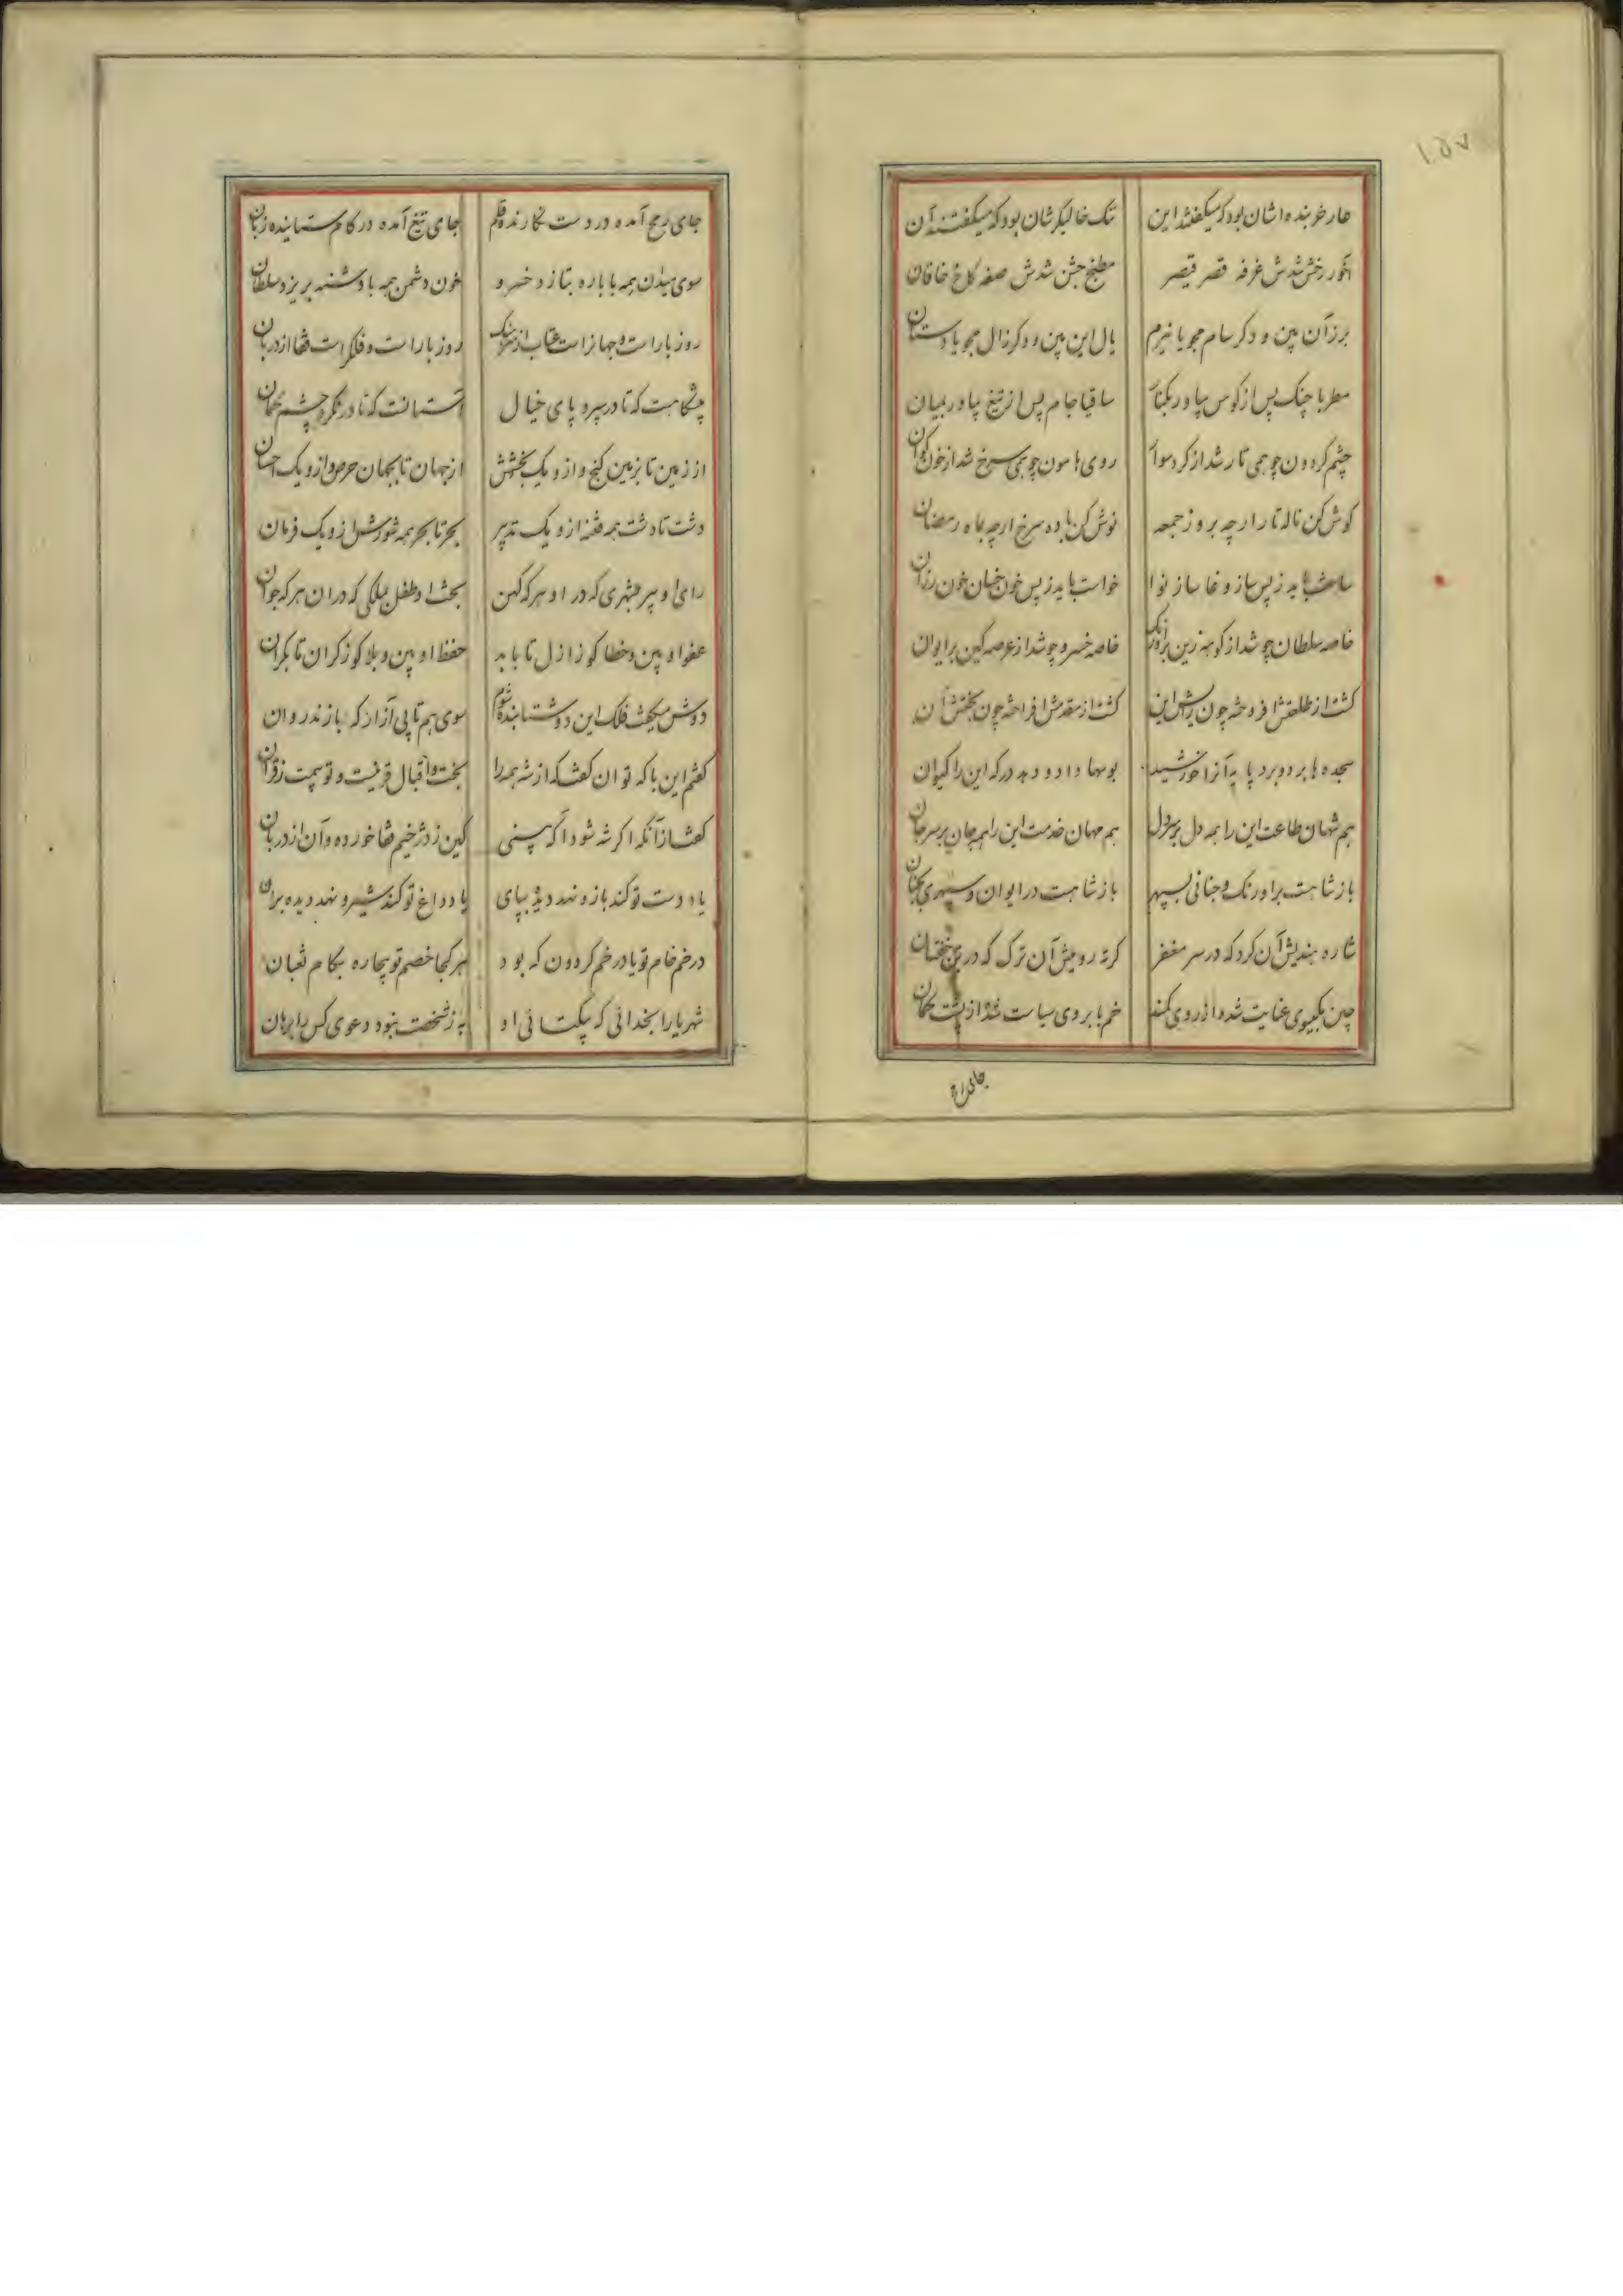 ۱۵۷
عار خربنده اشان بود که میگفتند این تنک خالیکرشان بود که میگفتند آن
آخور رخش شدش غرفه قصر قیصر مطبخ جشن شدش صفه کاخ خاقان
برز آن بین و دکر سام مجو یا نیرم یال این بین و دکر زال مجو یا دستان
مطربا چنک پس از کوس بیاور بکنار ساقیا جام پس از تیغ بیاور بمیان
چشم کردون چو همی تار شد از کرد سواران روی هامون چو همی سرخ شد از خون کوان
کوش کن ناله تار ار چه بروز جمعه نوش کن باده سرخ ار چه بماه رمضان
ساخت باید ز پس ساز و غا ساز نوا خواست باید ز پس خون خسان خون رزان
خاصه سلطان چو شد از کوهه زین بر اورنک خاصه خسرو چو شد از عرصه کین بر ایوان
کشت از طلعتش افروخته چون رایش این کشت از مقدمش افراخته چون بختش آن
سجده ها برد و برد پایه آنرا خورشید بوسها داد و دهد درکه این را کیوان
هم شهان طاعت این را همه دل بر سر دل هم مهان خدمت این را همه جان بر سر جان
باز شاهست بر اورنک و جنانی بسپهر باز شاهست در ایوان و سپهری بجنان
شاره هندیش آن کرد که در سر مغفر کرته رومیش آن ترک که در بر خفتان
چین بکیسوی عنایت شده از روی کمند خم بابروی سیاست شده از پشت کمان
جای رمح
جای رمح آمده در دست نکارنده قلم جای تیغ آمده در کام ستاینده زبان
سوی میدان همه با باره بتازد خسرو خون دشمن همه با دشنه بریزد سلطان
روز بار است و جهانراست عتاب از سرهنک روز بار است و فلکراست قفا از دربان
پیشکاهست که تا در سپرد پای خیال آستانست که تا در نکرد چشم کمان
از زمین تا بزمین کنج و ازو یک بخشش از جهان تا بجهان حرص و ازو یک احسان
دشت تا دشت همه فتنه ازو یک تدبیر بحر تا بحر همه شورش ازو یک فرمان
رای او پیر بشهری که در او هر که کهن بخت او طفل بملکی که در ان هر که جوان
عفو او بین و خطا کو ز ازل تا بابد حفظ او بین و بلا کو ز کران تا بکران
دوش میکفت فلک این دو شتابنده شوم سوی هم تا پی آزار که بازند روان
کفتم این با که توان کفت که از شه همه را بخت و اقبال قرینست و توسهمت ز قران
کفت از آنکه اکر شه شود آکه بینی کین ز دژخیم قفا خورده و آن از دربان
یاد دست تو کند باز و نهد دیده بپای یاد داغ تو کند شیر و نهد دیده بران
در خم خام تو یا در خم کردون که بود هر کجا خصم تو بیچاره بکام ثعبان
شهریارا بخدائی که بیکتائی او به ز شخصت نبود دعوی کس را برهان